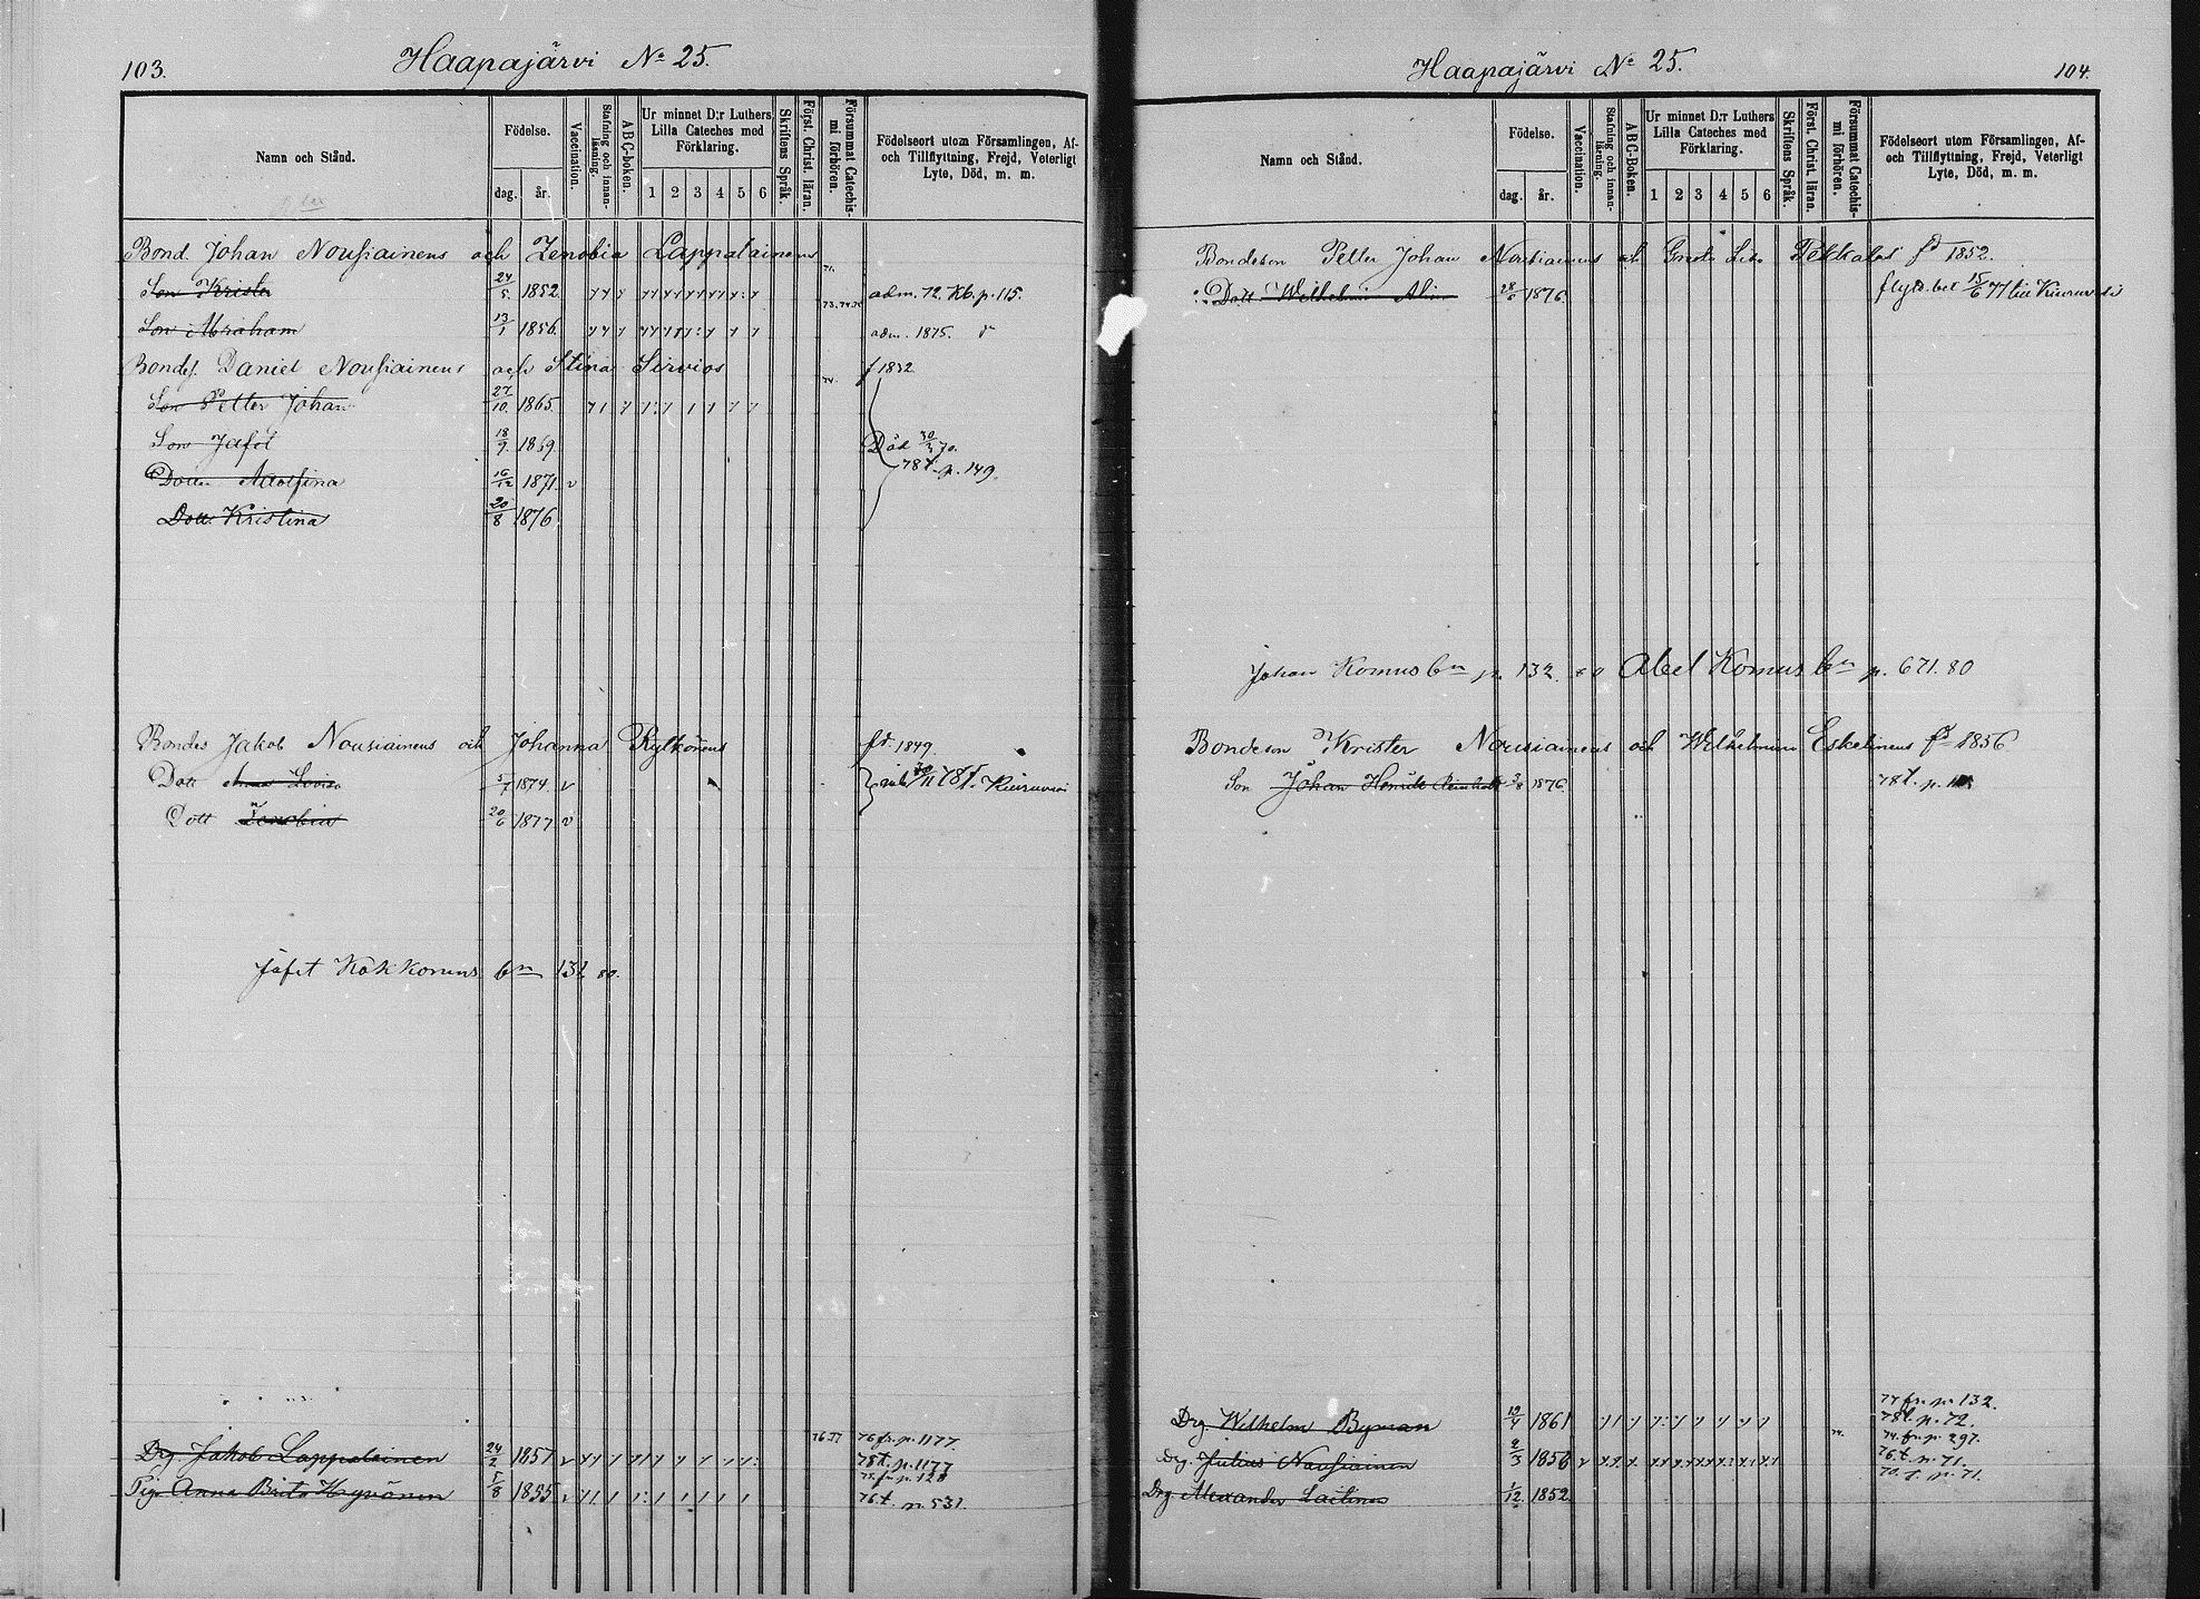 103.
Haapajärvi No 25.
Namn och Stånd.
Födelse.
dag.
år.
Vaccination.
Stafning och innanläsning.
ABC-boken.
Ur minnet D:r Luthers Lilla Cateches med Förklaring.
1 2 3 4 5 6
Skriftens Språk.
Först. Christ. läran.
Försummat Catechismi förhören.
Födelseort utom Församlingen, Af- och Tillflyttning, Frejd, Veterligt Lyte, Död, m. m.
Bond. Johan Nousiainens och Zenobia Lappalainens
Son Krister 24/5. 1852. adm. 72. Kb. p. 115.
Son Abraham 13/1 1856. adm. 1875.
Bondes. Daniel Nousiainens och Stina Sirviös f 1832
Son Petter Johan 27/10. 1865.
Son Jafet 18/9. 1869. Död 30/3 70.
78 t. p. 149.
Dotter 16/12 1871. v
Dott. Kristina 20/8 1876
Bondes Jakob Nousiainens och Johanna Rytkönens fd. 1849.
Dott Anna Lovisa 5/7 1874. v 78 t. Kiuruvesi
Dott Zenobia 20/6 1877 v
Jafet Kokkonens 131 80.
Drg. Jakob Lappalainen 24/2 1857 76 fr. p. 1177.
78 t. p. 1177
Pig. Anna Brita Hyvönen 5/8 1855 76 t. p. 531.
Haapajärvi No 25.
104.
Namn och Stånd.
Födelse.
dag.
år.
Vaccination.
Stafning och innanläsning.
ABC-Boken.
Ur minnet D:r Luthers Lilla Cateches med Förklaring.
1 2 3 4 5 6
Skriftens Språk.
Först. Christ. läran.
Försummat Catechismi förhören.
Födelseort utom Församlingen, Af- och Tillflyttning, Frejd, Veterligt Lyte, Död, m. m.
Bondeson Petter Johan Nousiainens och Greta Lisa Pekkalas fd 1852.
Dott Wilhelmi Alina 28/6 1876. flytt. bet 15/6 77 till Kiuruvesi
Johan Komus p. 132. 80 Abel Komus p. 671. 80
Bondeson Krister Nousiainens och Wilhelmina Eskelinens fd 1856
Son Johan Henrik Reinhold 3/8 1876. 78 t. p.
77 fr. p. 132.
Drg. Wilhelm Byman 19/4 1861 78 t. p. 72.
74. fr. p. 297.
Drg. Julius Nousiainen 2/3 1856 76 t. p. 71.
Drg. Alexander Laitinen 1/12. 1852